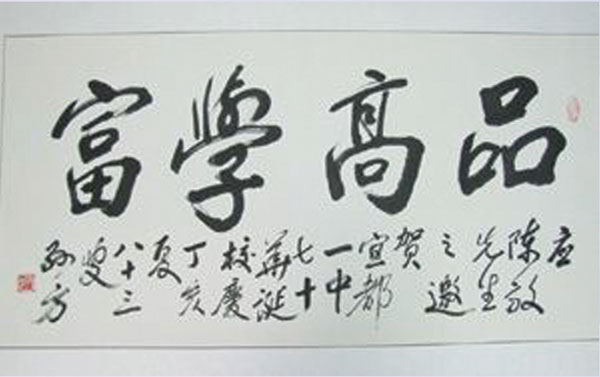 品高學富
应
陈
先生
之邀
贺
宜都
一中
七十
華诞
校慶
丁亥
夏
八十三
叟
孙方